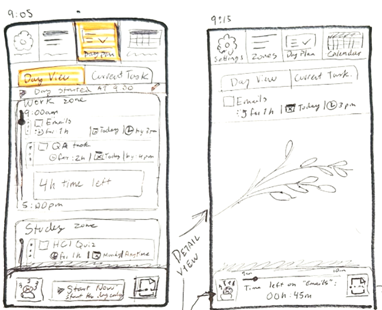 9:05
Day View
Current Task
Day started at 9:00
Work zone
9:00am
Emails
for 1h | Today | by 2pm
QA task
for 2h | Today | by 4pm
4h time left
5:00pm
Study zone
HCI Quiz
for 1h |
Start Now
DETAIL VIEW
9:15
Settings
Zones
Day Plan
Calendar
Day View
Current Task
Emails
for 1h | Today | 2pm
Time left on "Emails":
00h:45m